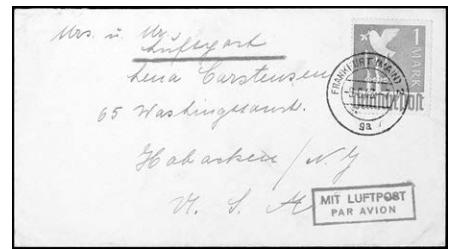 Mrs. u. Mr
Luftpost
Lena Carstensen
65 Washingtonstr.
Hobocken / N.Y
U. S. A
1
MARK
FRANKFURT (MAIN) 2
ga
MIT LUFTPOST
PAR AVION